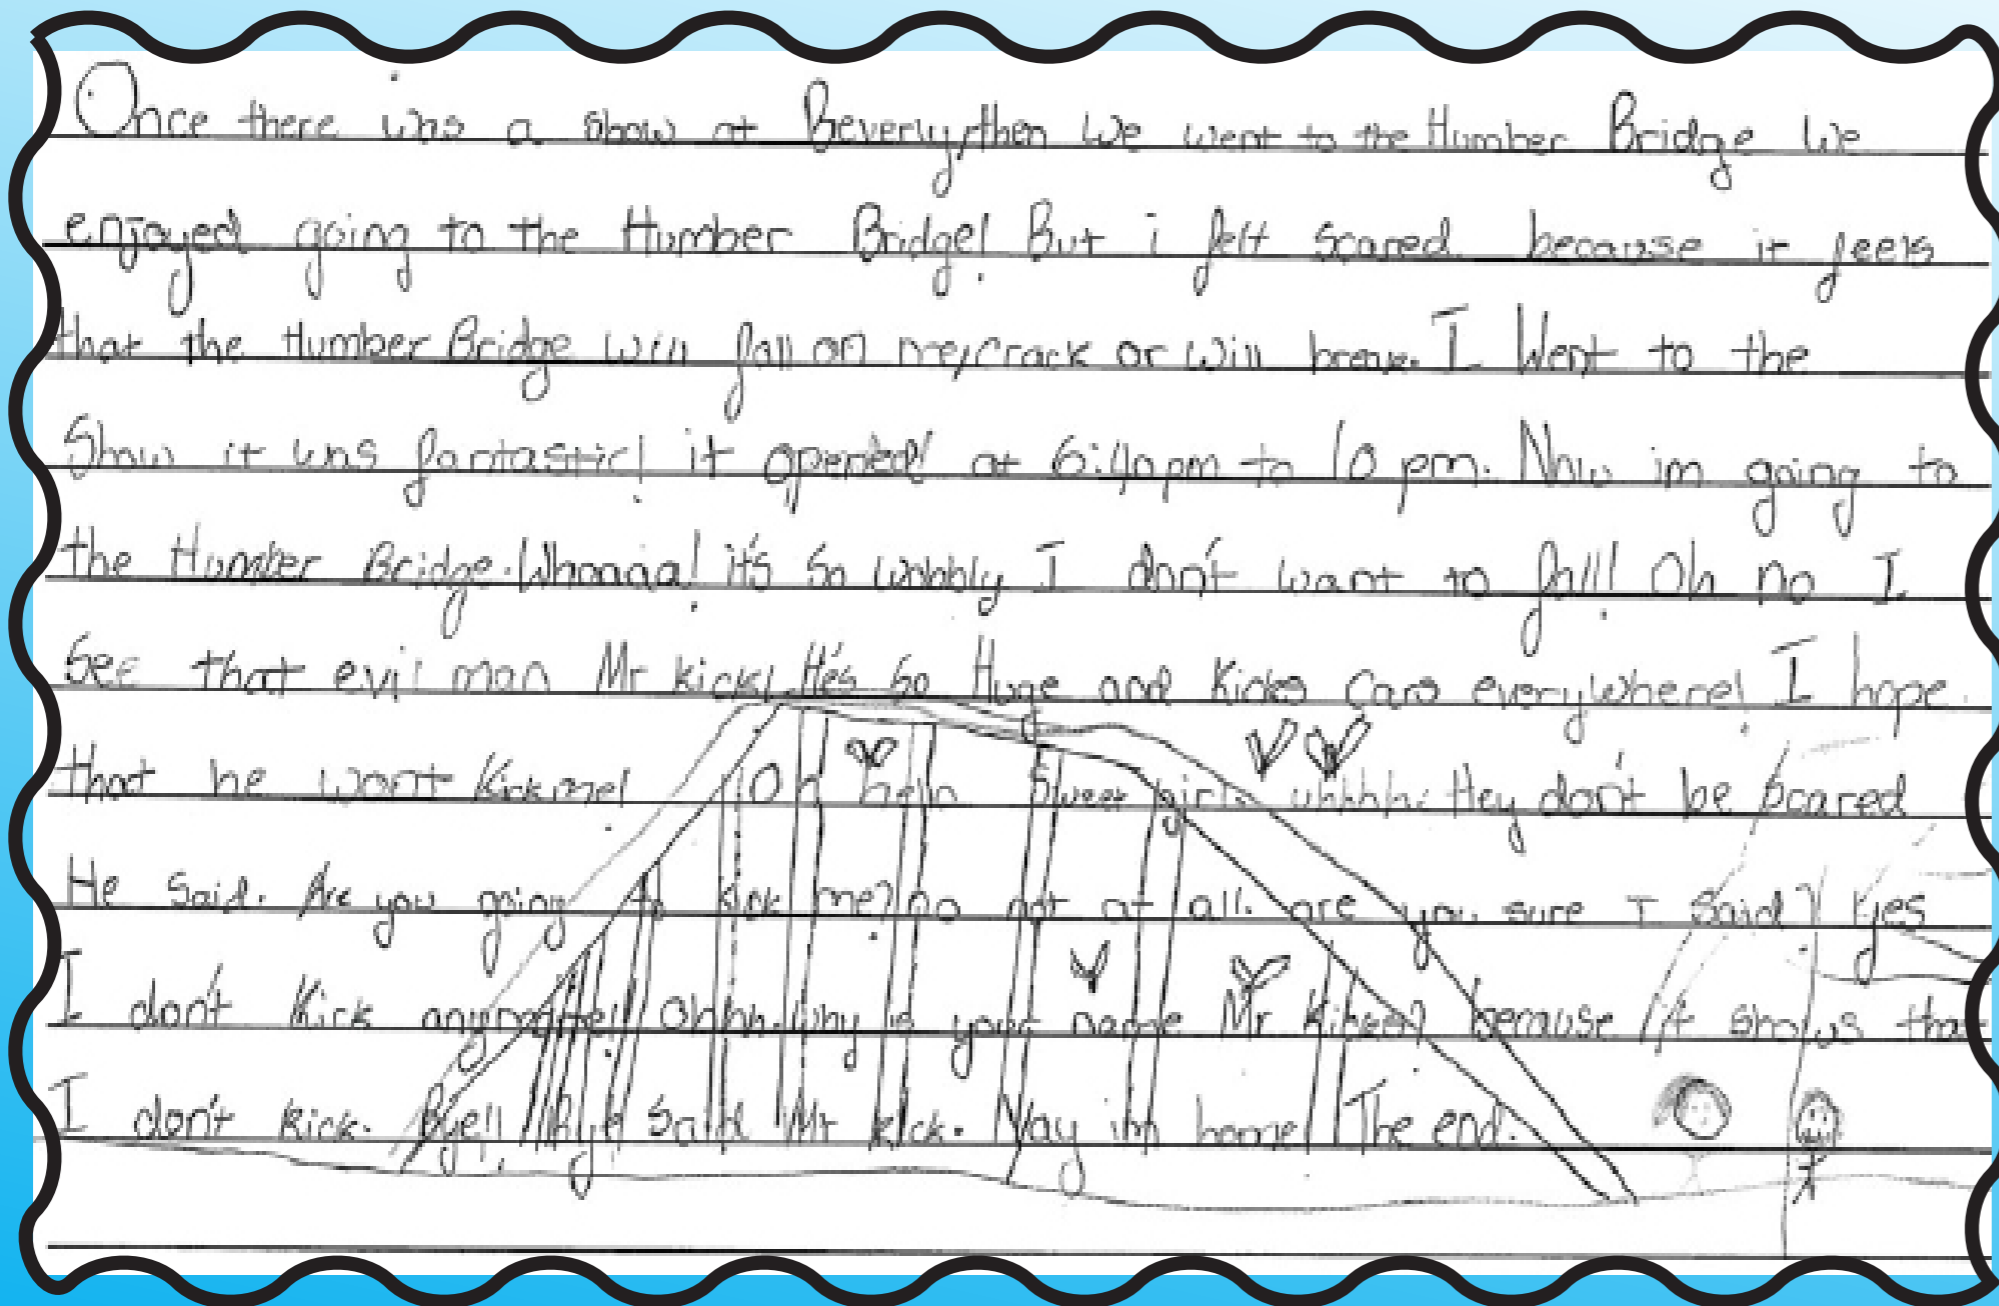 Once there was a show at Beverly, then we went to the Humber Bridge We
enjoyed going to the Humber Bridge! But i felt scared because it feels
that the Humber Bridge will fall on me, crack or will break. I Went to the
Show it was fantastic! it opened at pm to 10 pm. Now im going to
the Humber Bridge. Whoaaa! it's So wobbly I don't want to fall! Oh no I
See that evil man Mr kick! He's So Huge and Kicks Cars everywhere! I hope
that he wont Kick me! Oh Sweet girl uhhhh Hey don't be Scared
He Said. Are you going to kick me? no not at all. are you sure I Said? Yes
I don't Kick anymore! Ohhh. Why is your name Mr because it shows that
I don't kick. Bye!! Bye Said Mr kick. Yay im home! The end.